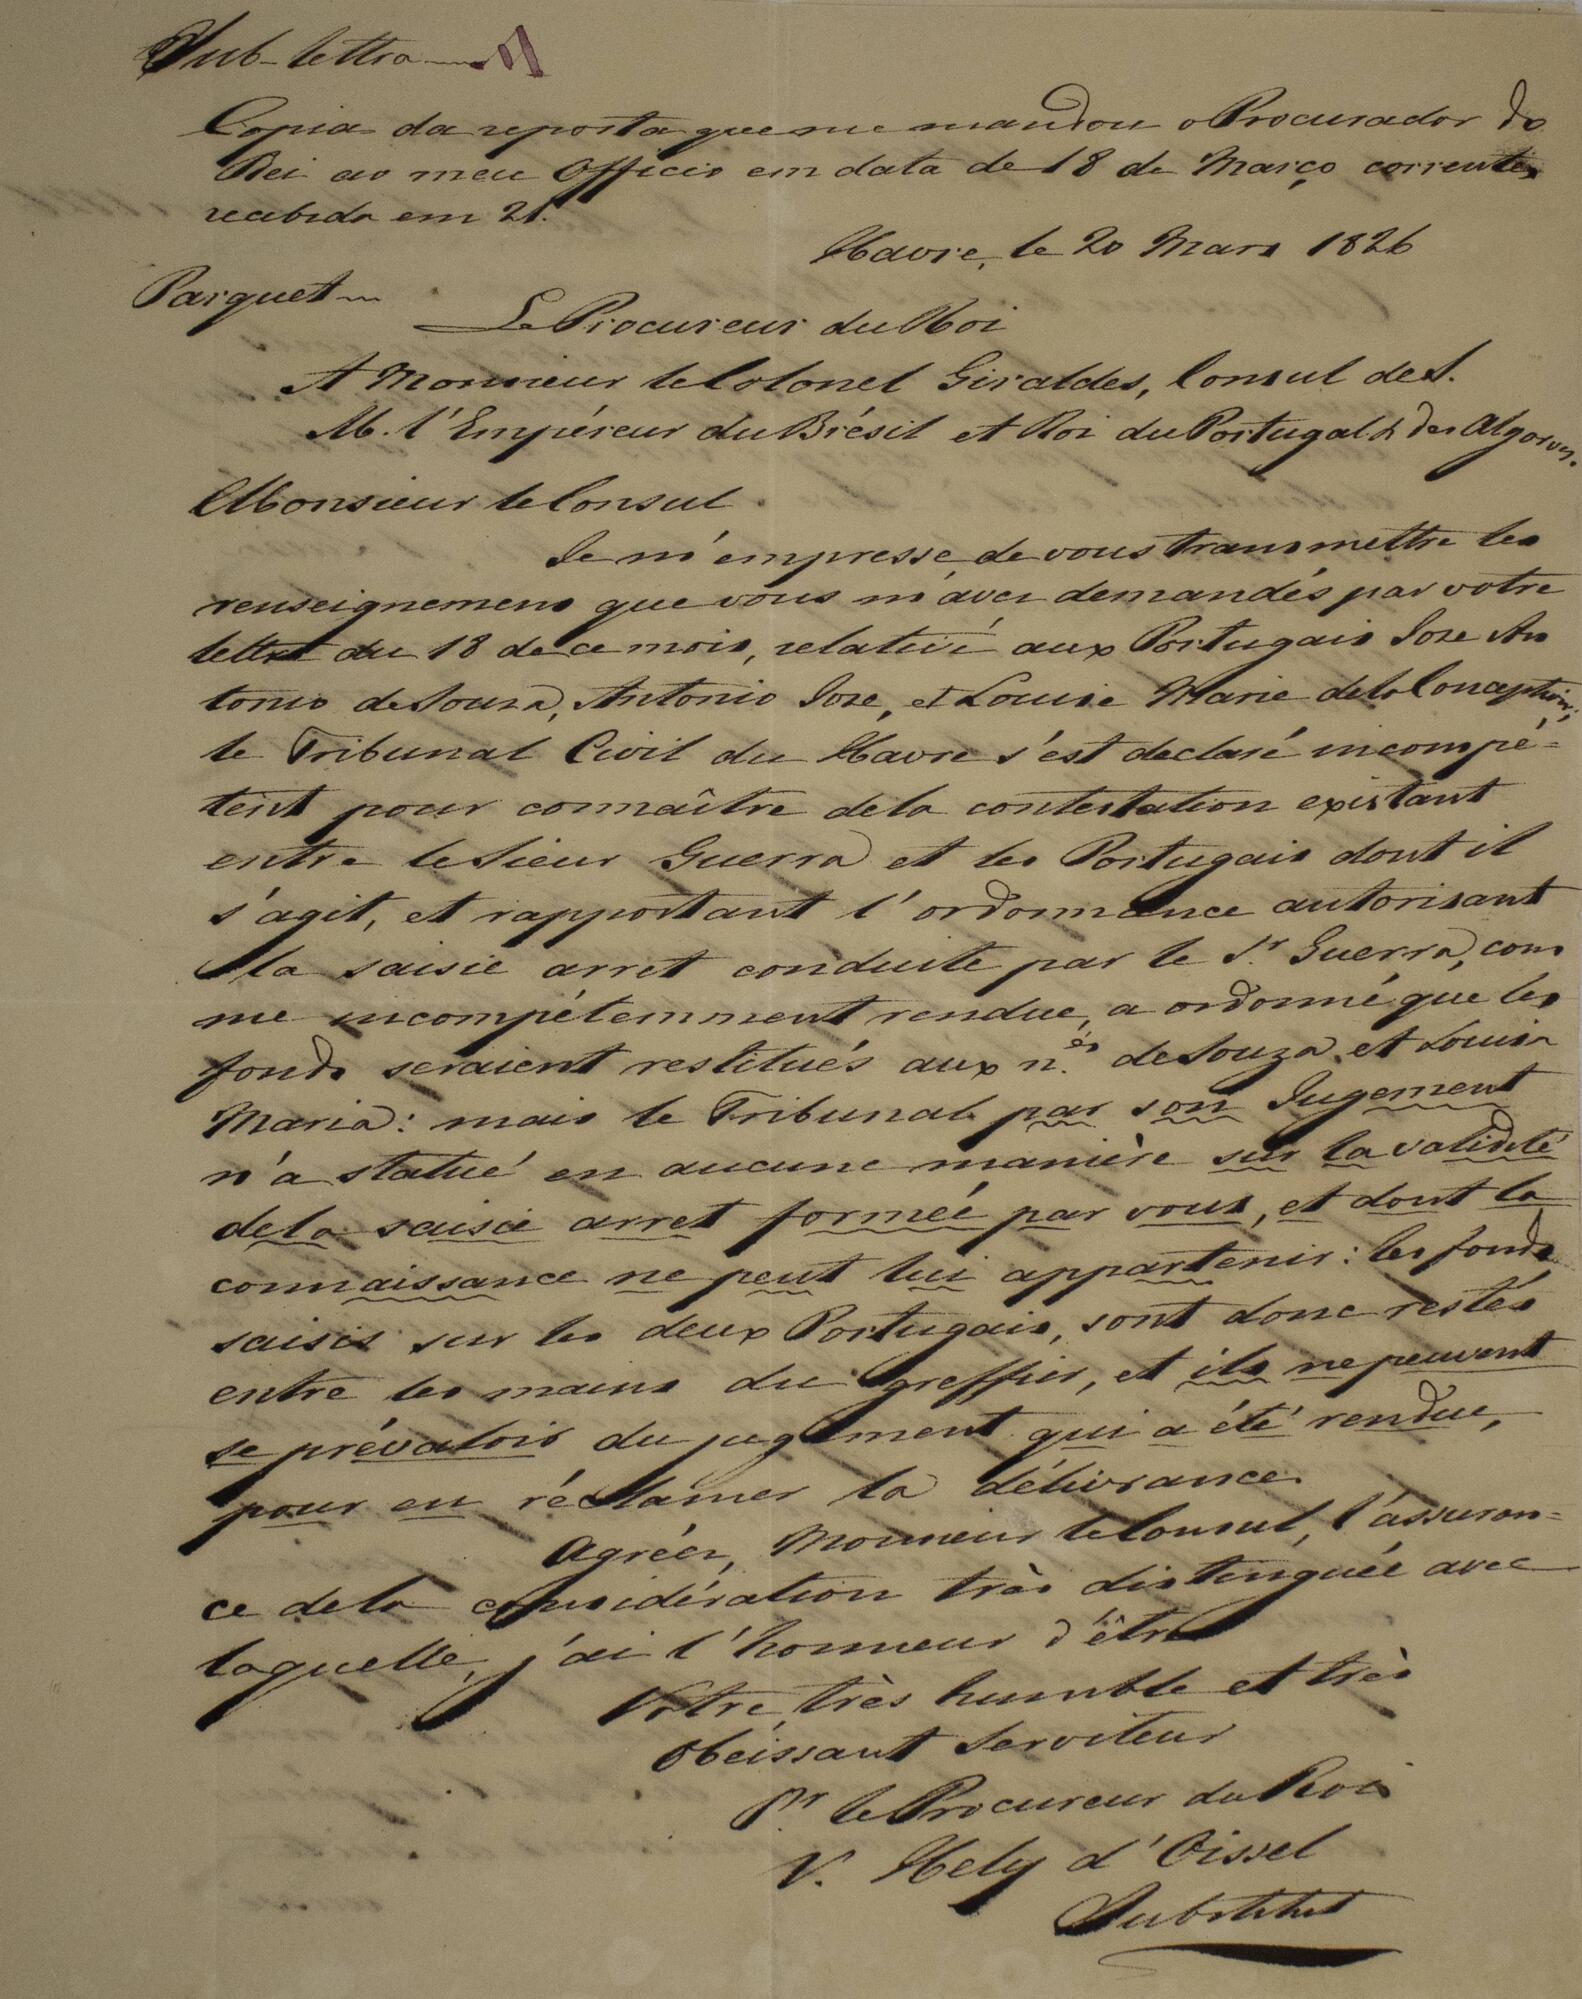 Sub-lettra
Copia da reposta que me mandou o Procurador do
Rei ao meu Officio em data de 18 de Março corrente,
recebida em 21.
Havre, le 20 Mars 1826
Parquet
Le Procureur du Roi
A Monsieur le Colonel Giraldes, Consul de S.
M. l'Empéreur du Brésil et Roi du Portugal & des Algarves.
Monsieur le Consul
Je m'empresse de vous transmettre les
renseignemens que vous m'avez demandés par votre
lettre du 18 de ce mois, relative aux Portugais Joze An
tonio de Souza, Antonio Joze, et Louise Marie de la Conception;
le Tribunal Civil du Havre s'est declaré incompé=
tent pour connaître de la contestation existant
entre le Sieur Guerra et les Portugais dont il
s'agit, et rapportant l'ordonnance autorisant
la saisie arret conduite par le Sr. Guerra, com
me incompétemment rendue, a ordonné que les
fonds seraient restitués aux n.és de Souza et Louisa
Maria: mais le Tribunal par son Jugement
n'a statué en aucune manière sur la validité
de la saisie arret formée par vous, et dont la
connaissance ne peut lui appartenir: les fonds
saisis sur les deux Portugais, sont donc restés
entre les mains du greffier, et ils ne peuvent
se prévaloir du jugement qui a été rendue,
pour en réclamer la délivrance.
Agréez, Monsieur le Consul, l'assuran=
ce de la considération très distinguée avec
laquelle, j'ai l'honneur d'être
Votre très humble et très
Obeissant Serviteur
Pr. le Procureur du Roi
V. Hely d'Oissel
Substitut